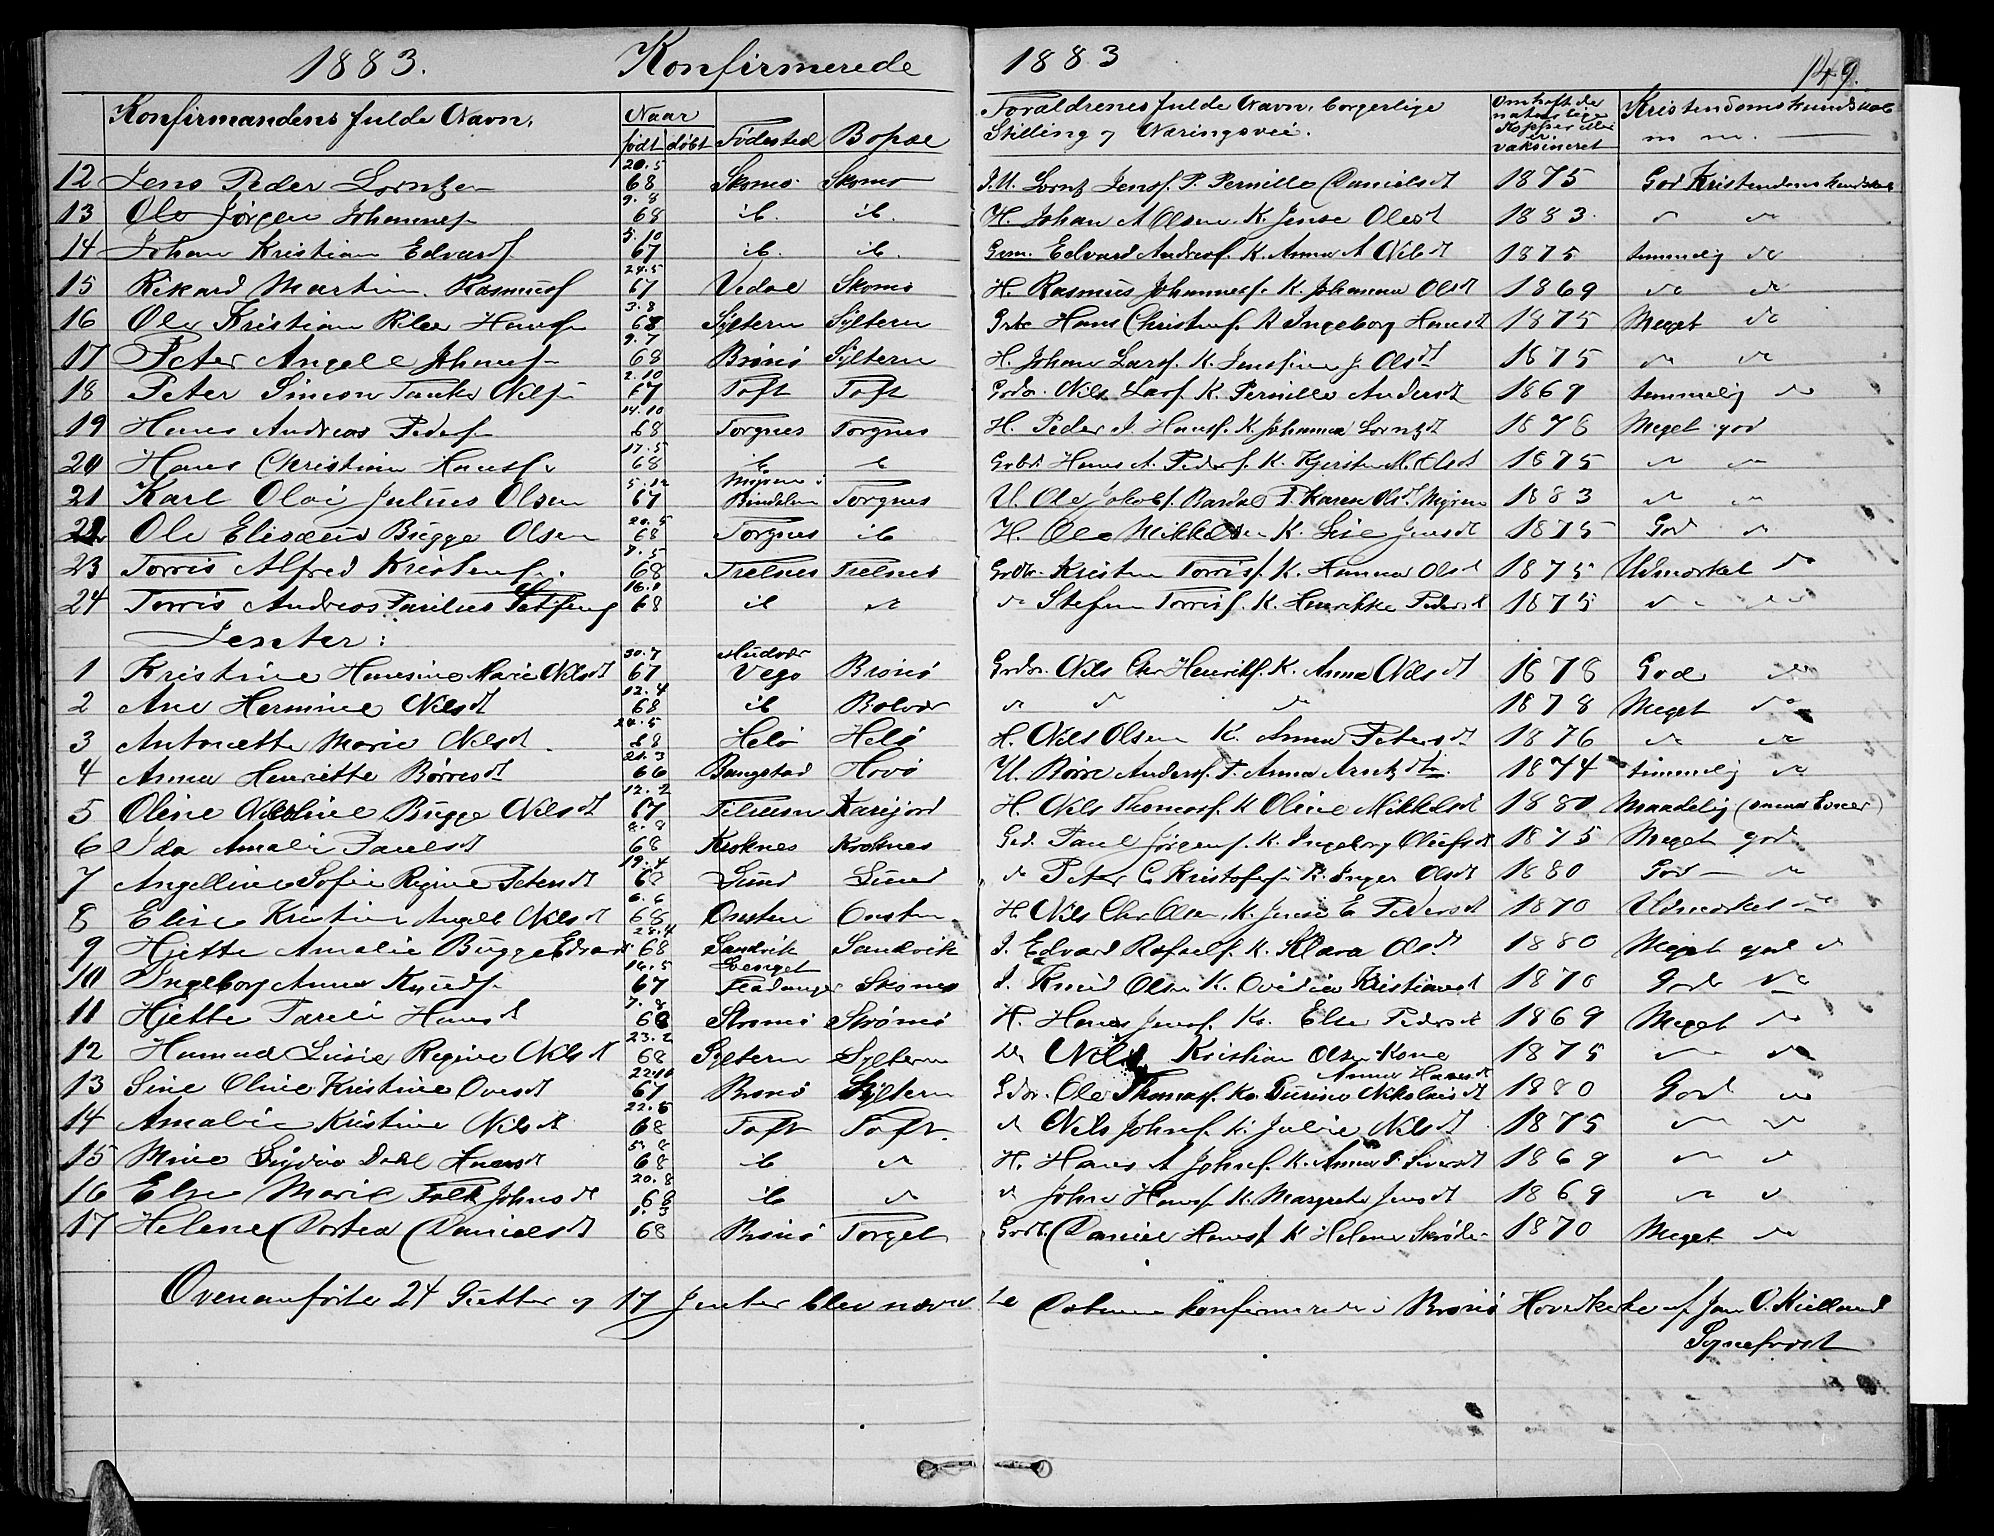 1883. Konfirmerede 1883 149.
Konfirmandens fulde Navn. Naar født døbt Fødested Bopæl Forældrenes fulde Navn, borgerlige Stilling og Næringsvei. Om haft de naturlige Kopper eller er vaksineret Kristendomskundskab m. m.
12 Jens Peder Lorntzen 20.5 68 Skomo Skomo Lorntz Jensf. P. Pernille Danielsdt 1875 God Kristendomskundskab
13 Ole Jørgen Johannesf. 9.8 68 ib. ib. H. Johan A Olsen K. Jense Olesdt 1883 " "
14 Johan Kristian Edvardf 5.10 67 ib. ib. Gvm. Edvard Andreasf. K. Anna A Nilsdt 1875 temmelig do
15 Rikard Martin Rasmusf 24.5 67 Vedal Skomo H. Rasmus Johannesf. K. Johanna Olsdt 1869 do do
16 Ole Kristian Hansf. 3.8 68 Syltern Syltern Hans Christenf. Ingeborg Hansdt 1875 Meget do
17 Peter Angell Johansf. 9.7 68 Brønø Syltern H. Johan Larsf. K. Jensine J. Olsdt 1875 do do
18 Peter Simon Nilsf. 2.10 67 Toft Toft Grdbr. Nils Larsf. K. Pernille Andersdt 1869 temmelig do
19 Hans Andreas Pedersf. 14.10 68 Torgnes Torgnes H. Peder J. Hansf. K. Johanna Lorntzdt 1878 Meget god
20 Hans Christian Hansf. 17.5 68 ib ib Grbr. Hans A. Pedersf. K. Kjersten M. Olsdt 1875 do do
21 Karl Olai Julius Olsen 5.12 67 Bindalen Torgnes U. Ole Jakobsf. P. Karen Olsdt 1883 do do
22 Ole Elisæus Bugge Olsen 20.5 68 Torgnes ib H. Ole Mikkelsen K. Lise Jensdt 1875 God do
23 Torris Alfred Kristensf. 7.5 68 Trelnes Trelnes Grdbr. Kristen Torrisf. K. Hanna Olsdt 1875 Udmærket do
24 Torris Andreas 68 ib do do Stefen Torrisf. K. Henrikke Pedersdt 1875 do do
Jenter:
1 Kristine Hansine Marie Nilsdt 30.7 67 Vega Brønø Grdbr. Nils Chr Henriksf. K. Anna Nilsdt 1878 God do
2 Ane Hermine Nilsdt 12.4 68 ib Bolvær " " " 1878 Meget do
3 Antonette Marie Nilsdt 24.5 68 Helø Helø H. Nils Olsen K. Anna Petersdt 1876 do do
4 Anna Henriette Børresdt 21.3 66 Bangstad Hovø U. Børre Andersf. P. Anna Arntzdt. 1874 temmelig do
5 Oline Bugge Nilsdt 12.2 67 Tilrem Karifjord H. Nils Thomasf. K Oline Mikkelsdt 1880 Maadelig (smaa Evner)
6 Ida Amalie Paulsdt 8.8 68 Kroknes Kroknes Gd. Paul Jørgensf. K. Ingeborg Olufsdt 1875 Meget god
7 Angelline Sofie Regine Petersdt 19.4 68 Sund Sund do Peter C Kristofersf. K. Inger Olsdt 1880 God do
8 Elise Kristine Angell Nilsdt 6.6 68 H. Nils Chr Olsen K. Jense E Pedersdt 1870 Udmærket do
9 Hjette Amalie Bugge Edvardsdt 28.4 68 Sandvik Sandvik I. Edvard Rafaelf. K. Klara Olsdt 1880 Meget god do
10 Ingeborg Anna Knudsf. 16.5 67 Fladanger Skomo I. Knud Olsen K. Ovidia Kristiansdt 1870 God do
11 Hjette Pareli Hansdt 7.8 68 Strømø Strømø H. Hans Jensf. Ko. Else Pedersdt 1869 Meget do
12 Lusie Regine Nilsdt 23.2 68 Syltern Syltern do Nils Kristian Olsen Kone Anna Hansdt 1875 do do
13 Sine Oline Kristine Olesdt 22.10 67 Brønø Syltern Gdbr. Ole Thomasf. Ko. Gurine Nikolaisdt 1880 God do
14 Amalie Kristine Nilsdt 22.5 68 Toft Toft. do Nils Johnsf. K. Julie Nilsdt 1875 do do
15 Mine Dahl Hansdt 5.8 68 ib do H. Hans A Johnsf. K. Anna P. Siversdt 1869 do do
16 Else Marie Falk Johnsdt 20.8 68 ib do do John Hansf. K. Margrete Jensdt 1869 do do
17 Helene Dortea Danielsdt 1.3 68 Brønø Torget Grdb. Daniel Hansf. K Helene Skrøder 1870 Meget do
Ovenanførte 24 Gutter og 17 Jenter blev nævnte Datum konfirmerede i Brønø Hovedkirke af Jens O. Kielland
Sogneprest